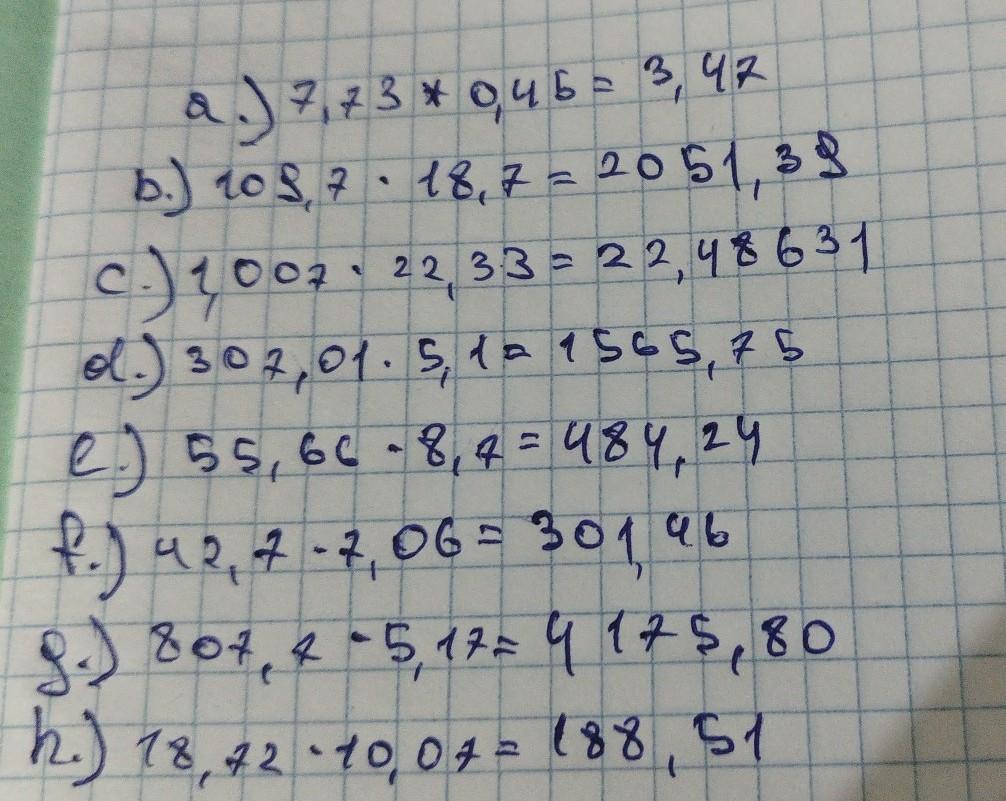 a.) 7,73 * 0,45 = 3,47
b.) 109,7 · 18,7 = 2051,39
c.) 1,007 · 22,33 = 22,48631
d.) 307,01 · 5,1 = 1565,75
e.) 55,66 · 8,7 = 484,24
f.) 42,7 · 7,06 = 301,46
g.) 807,7 · 5,17 = 4175,80
h.) 18,72 · 10,07 = 188,51